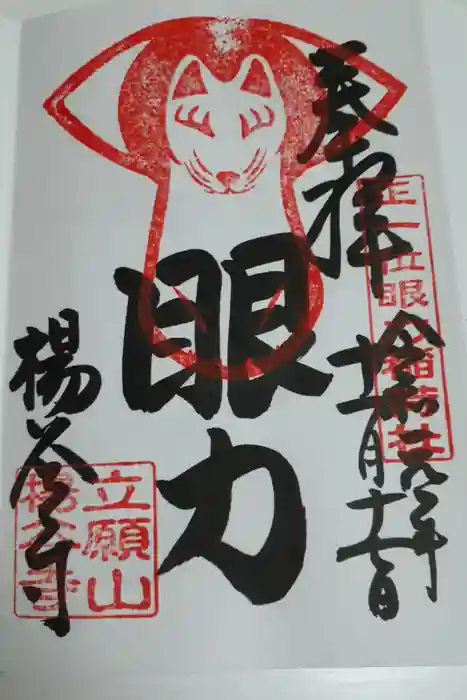 奉拝
正一位眼力稲荷社
令和元年
十一月十七日
眼力
立願山
楊谷寺
楊谷寺